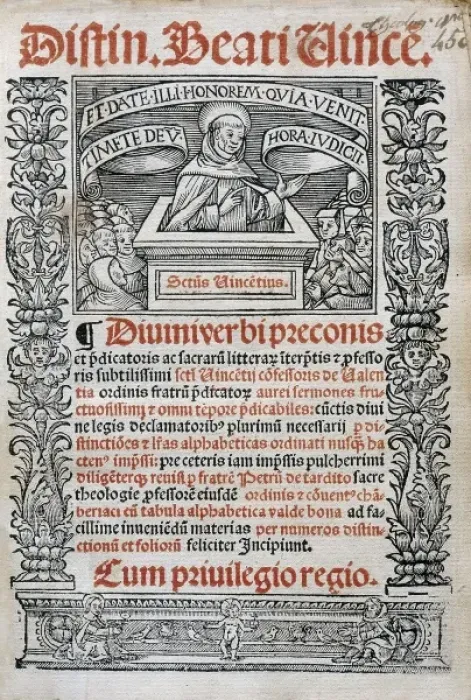 Distin. Beati Uincē.
45
ET·DATE·ILLI·HONOREM·QVIA·VENIT·
TIMETE DEV̄
HORA·IVDICII·
Sctūs Uincētius.
¶ Diuini verbi preconis
et p̄dicatoris ac sacrarū litteraꝝ īterp̄tis ⁊ ꝓfesso
ris subtilissimi scti Uincētij cōfessoris de Ualen
tia ordinis fratrū p̄dicatoꝝ aurei sermones fru-
ctuosissimi ⁊ omni tēpore p̄dicabiles: cūctis diui
ne legis declamatoribꝰ plurimū necessarij ꝑ di-
stinctiōes ⁊ lr̄as alphabeticas ordinati nusꝙ̄ ha
ctenꝰ imp̄ssi: pre ceteris iam imp̄ssis pulcherrimi
diligēterqꝫ reuisi ꝑ fratrē Petrū de tardito sacre
theologie ꝓfessorē eiusdē ordinis ⁊ cōuentꝰ chā-
beriaci cū tabula alphabetica valde bona ad fa-
cillime inueniēdū materias per numeros distin-
ctionū et foliorū feliciter Incipiunt.
Cum priuilegio regio.